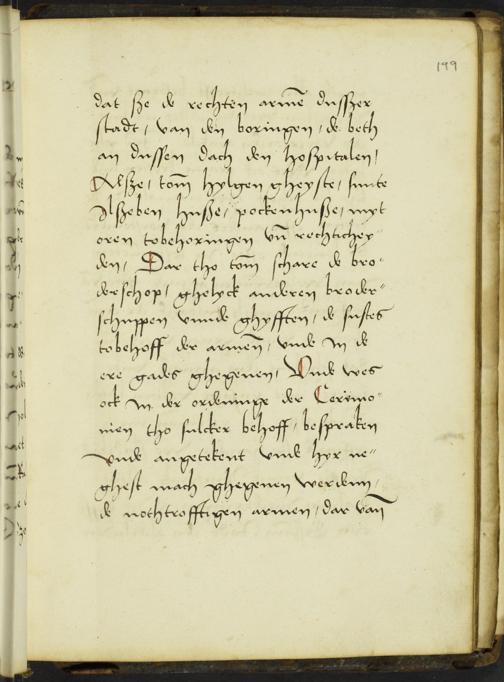 199
dat sze de rechten armē dusszer
stadt / van den boringen / de beth
an dussen dach den hospitalen /
Alsze / tom̄ hylgen gheyste / sunte
Alszeben husze / pockenhusze / myt
oren tobehoringen vn̄ rechtichey-
den / Dar tho tom̄ schare de bro-
derschop / ghelyck anderen broder-
schuppen vnnde ghyfften / de sustes
tobehoff der armen̄ / vnde in de
ere gades ghegeuen / Vnde wes
ock in der ordeninge der Cerimo-
nien tho sulcker behoff / bespraken
vnde angetekent vnde hyr ne-
ghest mach ghegeuen werdenn /
de nothtrofftigen armen / dar van̄